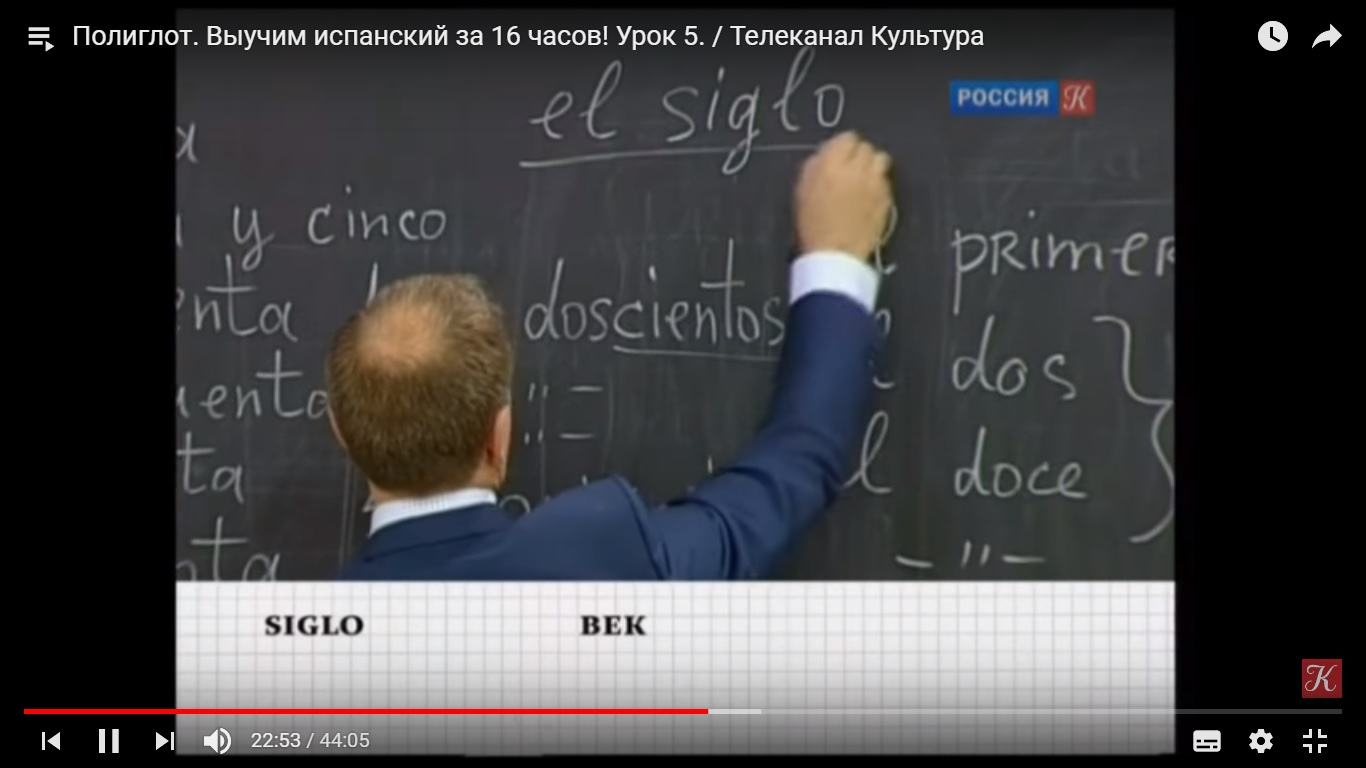 Полиглот. Выучим испанский за 16 часов! Урок 5. / Телеканал Культура
РОССИЯ К
el siglo
y cinco
primer
doscientos
dos
" –
" –
doce
– " –
SIGLO ВЕК
K
22:53 / 44:05